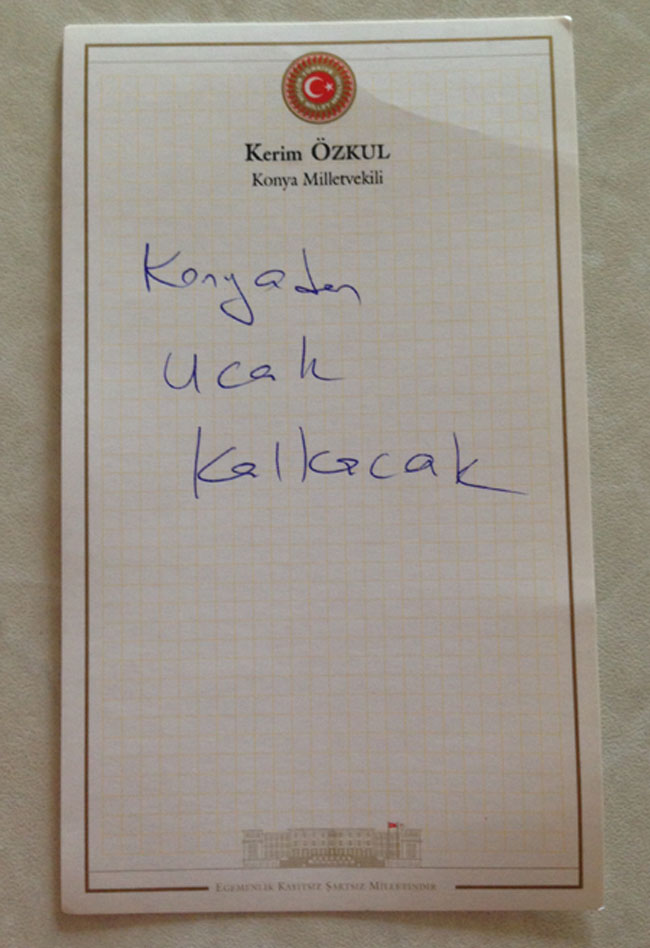 Kerim ÖZKUL
Konya Milletvekili
Konyadan
Ucak
Kalkacak
EGEMENLİK KAYITSIZ ŞARTSIZ MİLLETİNDİR